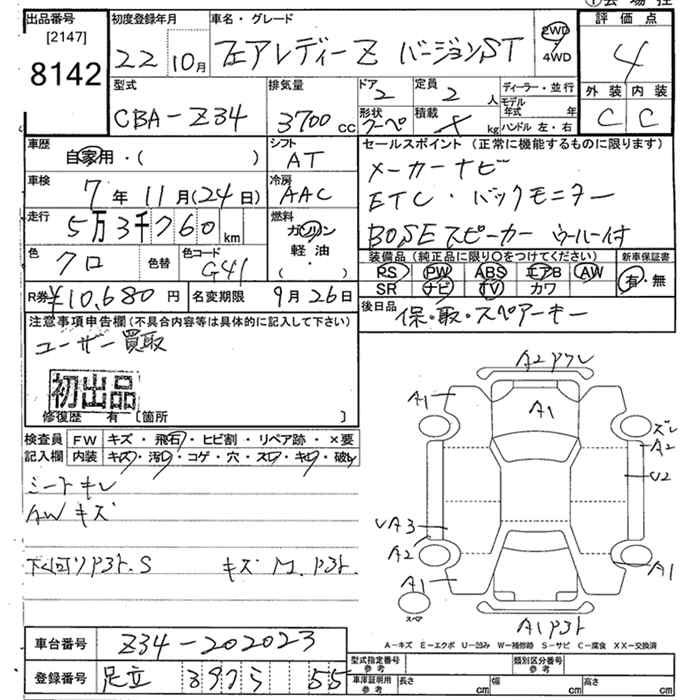 ①会場控
出品番号
[2147]
8142
初度登録年月
22 10月
車名・グレード
フェアレディーZ バージョンST
2WD
4WD
評価点
4
外装 内装
C C
型式
CBA-Z34
排気量
3700cc
ドア
2
定員
2人
形状
クーペ
積載
kg
ディーラー・並行
モデル年式 年
ハンドル 左・右
車歴
自家用・( )
シフト
AT
車検
7年11月(24日)
冷房
AAC
走行
5万3千760km
燃料
ガソリン
軽油
( )
色
クロ
色替
色コード
G41
R券 ¥10,680円
名変期限 9月26日
セールスポイント(正常に機能するものに限ります)
メーカーナビ
ETC・バックモニター
BOSEスピーカー ウーハー付
装備品(純正品に限り○をつけてください)
PS PW ABS エアB AW
SR ナビ TV カワ
新車保証書
有・無
後日品
保・取・スペアーキー
注意事項申告欄(不具合内容等は具体的に記入して下さい)
ユーザー買取
初出品
修復歴 有 [箇所 ]
検査員
記入欄
FW キズ・飛石・ヒビ割・リペア跡・×要
内装 キズ・汚レ・コゲ・穴・スレ・キレ・破レ
シートキレ
AWキズ
下回りPヨト.S キズM.Pヨト.
A2
A1
A1
ズレ
A2
U2
UA3
A2
A1
A1
スペア
A1Pヨト
A-キズ E-エクボ U-凹み W-補修跡 S-サビ C-腐食 XX-交換済
車台番号
Z34-202023
登録番号
足立
55
型式指定番号
参考
類別区分番号
参考
車庫証明用
参考
長さ cm
幅 cm
高さ cm